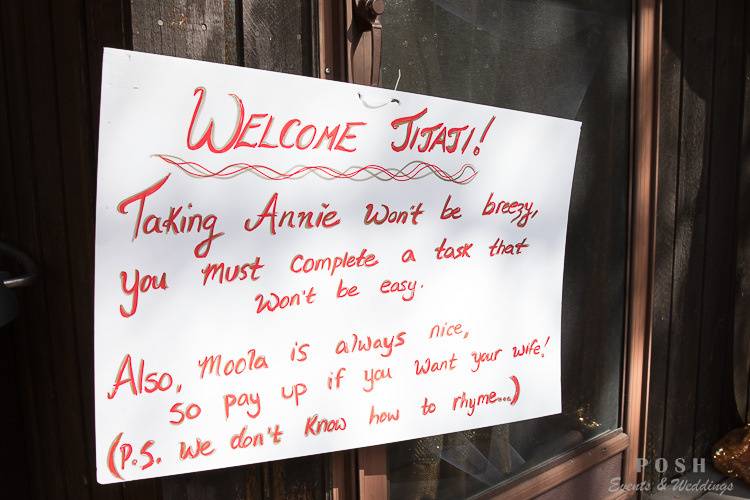 WELCOME JIJAJI!
Taking Annie won't be breezy,
you must complete a task that
won't be easy.
Also, moola is always nice,
so pay up if you want your wife!
(P.S. we don't know how to rhyme...)
POSH
Events & Weddings